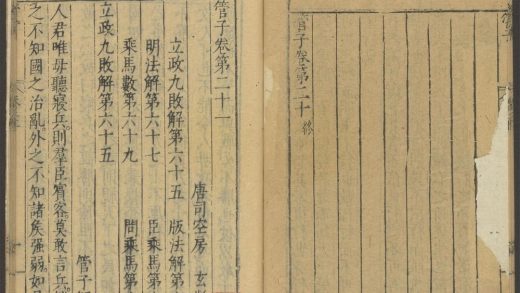 管子卷第二十 終
管子卷第二十一
唐司空房 玄
立政九敗解第六十五 版法解第
明法解第六十七 臣乘馬第
乘馬數第六十九 問乘馬第
立政九敗解第六十五 管子
人君唯毋聽寢兵則羣臣賓客莫敢言兵
之不知國之治亂外之不知諸侯强弱如